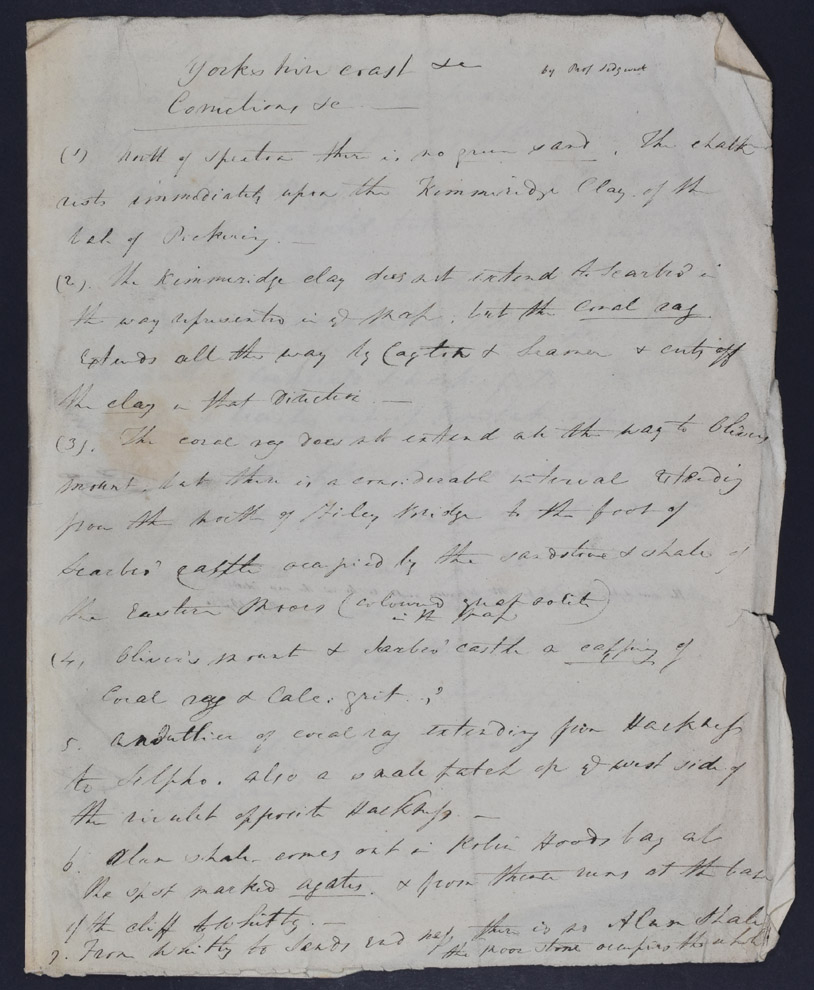 Yorkshire coast &c by Prof Sedgwick
Corrections &c
(1) North of Speeton there is no green sand. The chalk
rests immediately upon the Kimmeridge Clay of the
Vale of Pickering. —
(2). The Kimmeridge clay does not extend to Scarbro' in
the way represented in yr map, but the coral rag
Extends all the way by Cayton & Seamer & cuts off
the clay in that direction. —
(3). The coral rag does not extend all the way to Olivers
mount, but there is a considerable interval extending
from the north of Filey Bridge to the foot of
Scarbro' castle occupied by the sandstone & shale of
the Eastern Moors (coloured
in the map
(4) Oliver's mount & Scarbro' castle a capping of
Coral rag & Calc: grit.
5. an outlier of coral rag extending from Hackness
to Silpho. also a small patch on yr west side of
the rivulet opposite Hackness. —
6. Alum shale comes out in Robin Hoods bay at
the spot marked agates. & from thence runs at the base
of the cliff to Whitby. —
7. From Whitby to Sands End there is no Alum Shale
the moor stone occupies the whole